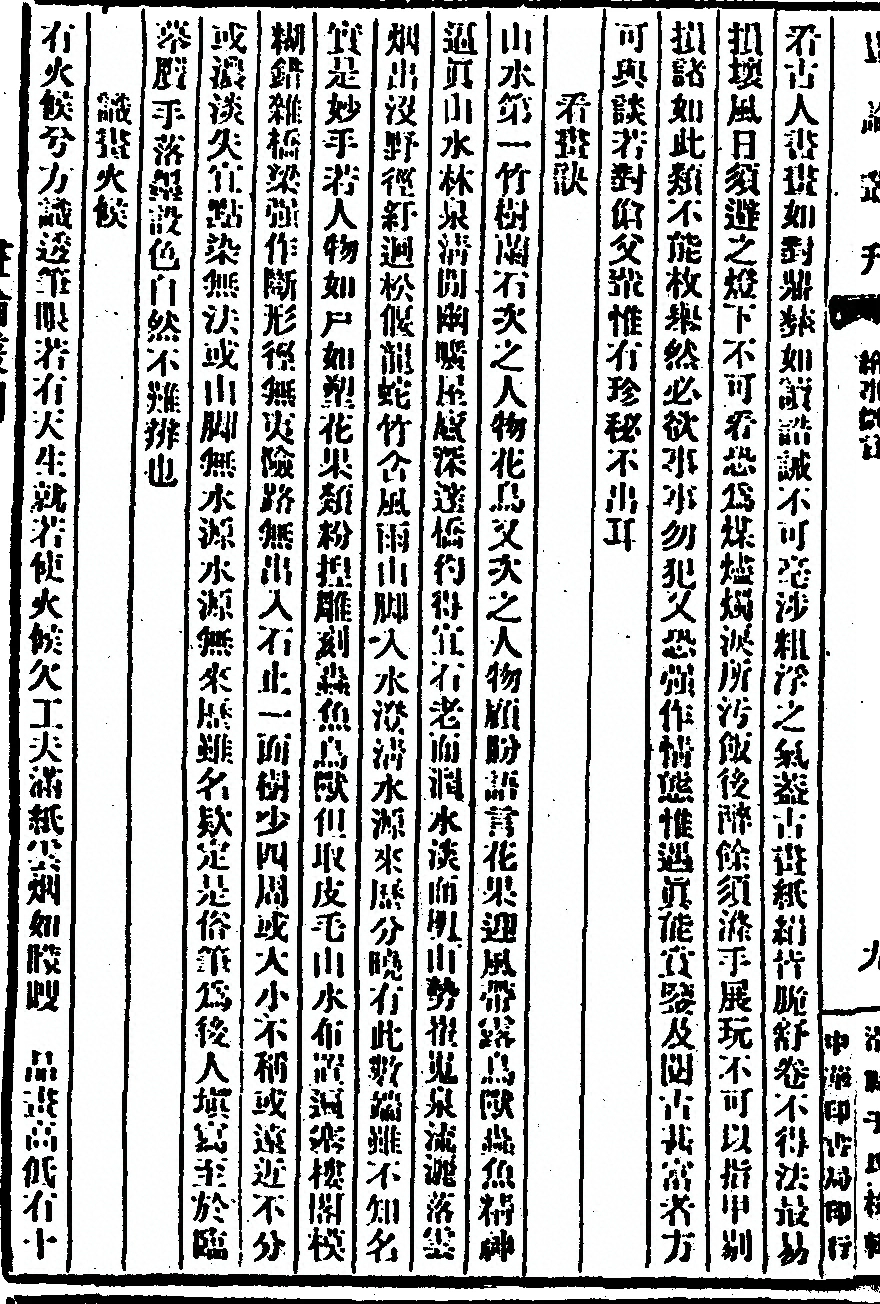 看古人書畫如對鼎彝如讀誥誡不可毫涉粗浮之氣蓋古畫紙絹皆脆舒卷不得法最易
損壞風日須避之燈下不可看恐為煤燼燭淚所污飯後醉餘須滌手展玩不可以指甲剔
損諸如此類不能枚舉然必欲事事勿犯又恐强作情態惟遇眞能賞鑒及閱古甚富者方
可與談若對傖父輩惟有珍秘不出耳
看畫訣
山水第一竹樹蘭石次之人物花鳥又次之人物顧盼語言花果迎風帶露鳥獸蟲魚精神
逼眞山水林泉淸閒幽曠屋廬深邃橋彴得宜石老而潤水淡而明山勢崔嵬泉流灑落雲
烟出沒野徑紆迴松偃龍蛇竹含風雨山脚入水澄淸水源來歷分曉有此數端雖不知名
實是妙手若人物如尸如塑花果類粉捏雕刻蟲魚鳥獸但取皮毛山水布置迫塞樓閣模
糊錯雜橋梁强作斷形徑無夷險路無出入石止一面樹少四周或大小不稱或遠近不分
或濃淡失宜點染無法或山脚無水源水源無來歷雖名欵定是俗筆為後人塡寫至於臨
摹贋手落墨設色自然不難辨也
識畫火候
有火候兮方識透筆眼若有天生就若使火候欠工夫滿紙雲烟如矇瞍　品畫高低有十
九
中華印書局印行